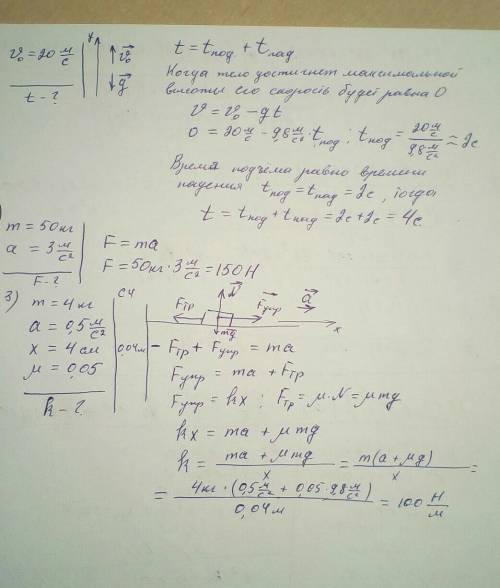 v₀ = 20 м/с
t - ?
y
v₀
g
t = tпод + tпад.
Когда тело достигнет максимальной
высоты его скорость будет равна 0
v = v₀ - gt
0 = 20 м/с - 9,8 м/с² · tпод ; tпод = 20 м/с / 9,8 м/с² ≈ 2с
Время подъёма равно времени
падения tпод = tпад = 2с, тогда
t = tпод + tпад = 2с + 2с = 4с.
)
m = 50кг
a = 3 м/с²
F - ?
F = ma
F = 50кг · 3 м/с² = 150Н
3)
m = 4кг
a = 0,5 м/с²
x = 4см
μ = 0,05
k - ?
СИ
0,04м
Fтр
N
Fупр
a
mg
x
- Fтр + Fупр = ma
Fупр = ma + Fтр
Fупр = kx ; Fтр = μ·N = μmg
kx = ma + μmg
k = ma + μmg / x = m(a + μg) / x =
= 4кг · (0,5 м/с² + 0,05 · 9,8 м/с²) / 0,04м = 100 Н/м